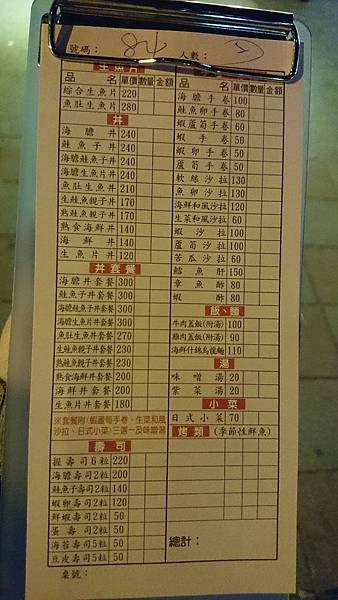 號碼： 84 人數：
生魚片
品 名 單價 數量 金額
綜合生魚片 220
魚肚生魚片 280
丼
海膽丼 240
鮭魚子丼 240
海膽鮭魚子丼 240
海膽生魚片丼 240
魚肚生魚丼 210
生鮭魚親子丼 170
熟鮭魚親子丼 170
熟食海鮮丼 140
海鮮丼 140
生魚片丼 120
丼套餐
海膽丼套餐 300
鮭魚子丼套餐 300
海膽鮭魚子丼套餐 300
海膽生魚片丼套餐 300
魚肚生魚丼套餐 270
生鮭魚親子丼套餐 230
熟鮭魚親子丼套餐 230
熟食海鮮丼套餐 200
海鮮丼套餐 200
生魚片丼套餐 180
※套餐附(蝦蘆筍手卷、生菜和風
沙拉、日式小菜)三選一及味噌湯
壽司
握壽司6粒 220
海膽壽司2粒 200
鮭魚子壽司2粒 140
蝦卵壽司2粒 120
鮮蝦壽司2粒 50
蛋壽司2粒 50
海苔壽司5粒 50
豆皮壽司5粒 50
桌號：
品 名 單價 數量 金額
海膽手卷 100
鮭魚卵手卷 80
蝦蘆筍手卷 60
蝦手卷 50
蝦卵手卷 50
蘆筍手卷 50
軟絲沙拉 130
魚卵沙拉 130
海鮮和風沙拉 120
生菜和風沙拉 60
蝦沙拉 100
蘆筍沙拉 100
苦瓜沙拉 60
鱈魚肝 150
章魚酢 80
蝦酢 80
飯、麵
牛肉蓋飯(附湯) 100
雞肉蓋飯(附湯) 90
海鮮什錦烏龍麵 110
湯
味噌湯 20
紫菜湯 20
小菜
日式小菜 70
烤類 (季節性鮮魚)
總計：